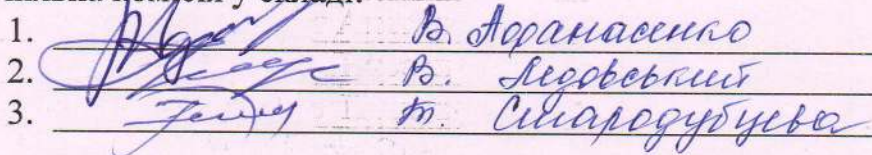 у складі:
1. В. Афанасенко
2. В. Ледовський
3. Т. Стародубцева